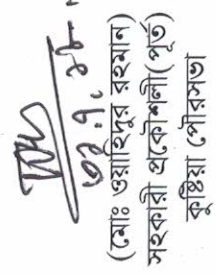 ৩১.৭.১৮
(মোঃ ওয়াহিদুর রহমান)
সহকারী প্রকৌশলী(পূর্ত)
কুষ্টিয়া পৌরসভা